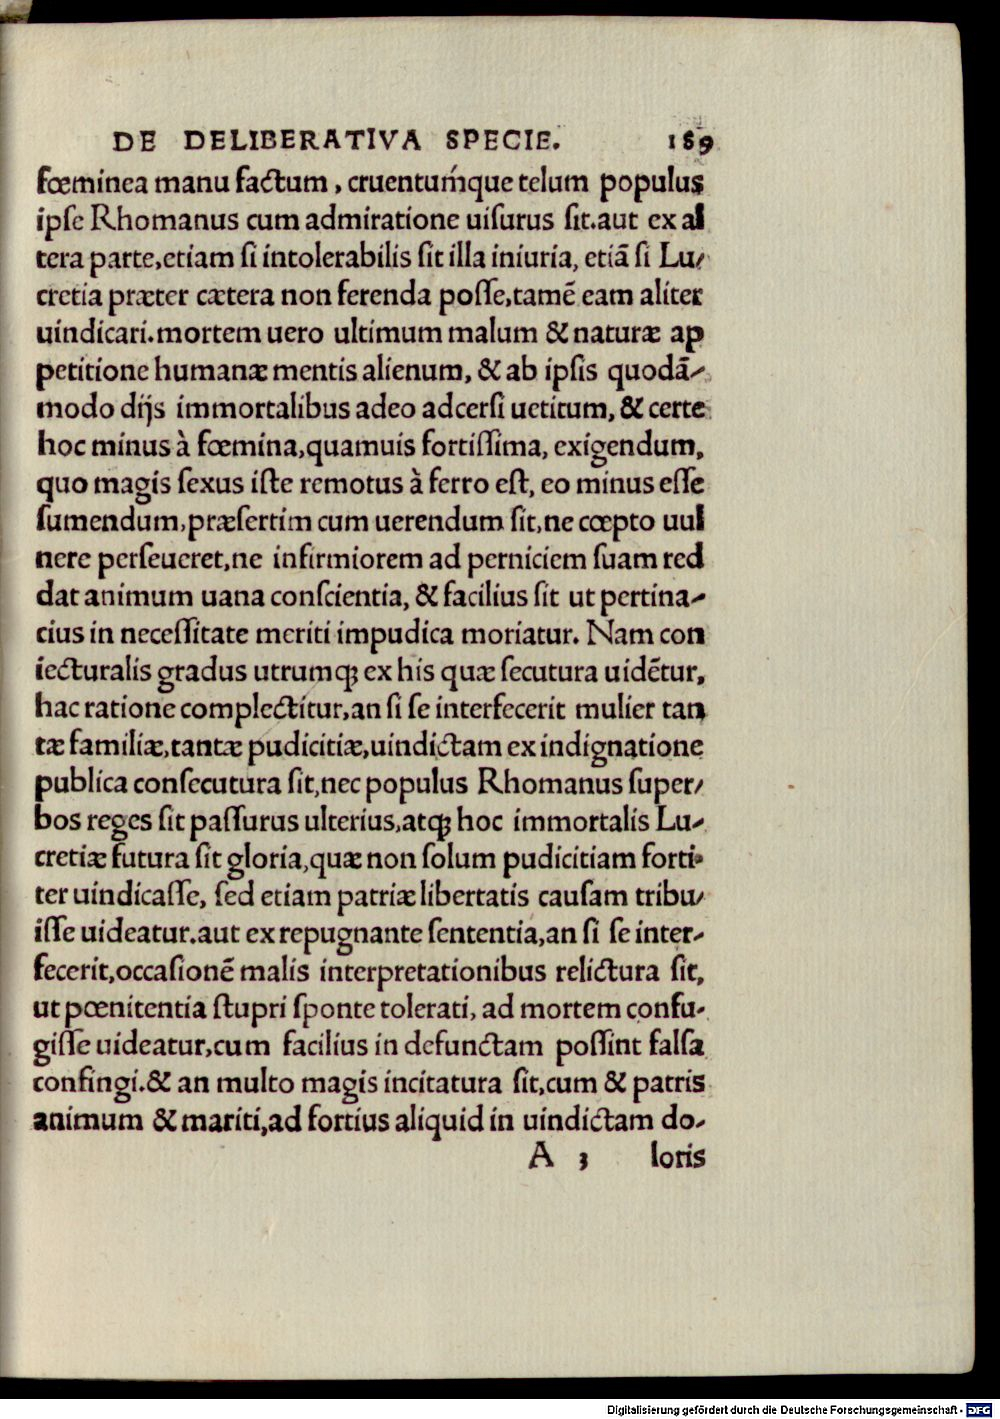 DE DELIBERATIVA SPECIE. 189
fœminea manu factum, cruentuḿque telum populus
ipſe Rhomanus cum admiratione uiſurus ſit.aut ex al
tera parte,etiam ſi intolerabilis ſit illa iniuria, etiã ſi Lu-
cretia præter cætera non ferenda poſſe,tamẽ eam aliter
uindicari.mortem uero ultimum malum & naturæ ap
petitione humanæ mentis alienum, & ab ipſis quodã-
modo dijs immortalibus adeo adcerſi uetitum, & certe
hoc minus à fœmina,quamuis fortiſſima, exigendum,
quo magis ſexus iſte remotus à ferro eſt, eo minus eſſe
ſumendum,præſertim cum uerendum ſit,ne cœpto uul
nere perſeueret,ne infirmiorem ad perniciem ſuam red
dat animum uana conſcientia, & facilius ſit ut pertina-
cius in neceſſitate meriti impudica moriatur. Nam con
iecturalis gradus utrumq; ex his quæ ſecutura uidẽtur,
hac ratione complectitur,an ſi ſe interfecerit mulier tan
tæ familiæ,tantæ pudicitiæ,uindictam ex indignatione
publica conſecutura ſit,nec populus Rhomanus ſuper-
bos reges ſit paſſurus ulterius,atq; hoc immortalis Lu-
cretiæ futura ſit gloria,quæ non ſolum pudicitiam forti-
ter uindicaſſe, ſed etiam patriæ libertatis cauſam tribu-
iſſe uideatur.aut ex repugnante ſententia,an ſi ſe inter-
fecerit,occaſionẽ malis interpretationibus relictura ſit,
ut pœnitentia ſtupri ſponte tolerati, ad mortem confu-
giſſe uideatur,cum facilius in defunctam poſſint falſa
confingi.& an multo magis incitatura ſit,cum & patris
animum & mariti,ad fortius aliquid in uindictam do-
A 3 loris
Digitalisierung gefördert durch die Deutsche Forschungsgemeinschaft - DFG